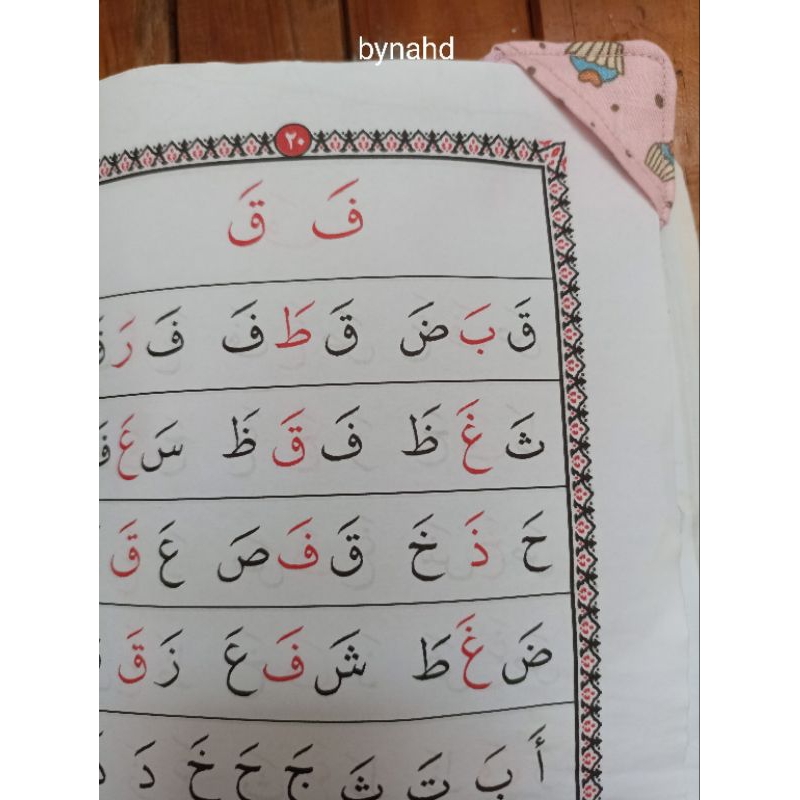 bynahd
٢٠
فَ قَ
قَ بَ ضَ قَ طَ فَ فَ رَ
ثَ غَ ظَ فَ قَ ظَ سَ غَ
حَ ذَ خَ قَ فَ صَ عَ قَ
ضَ غَ طَ شَ فَ عَ زَ قَ
أَ بَ تَ ثَ جَ حَ خَ دَ